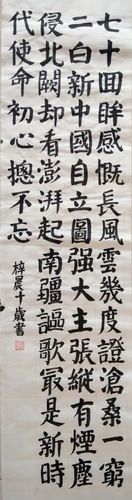 七十回眸感慨長風雲幾度證滄桑一窮
二白新中國自立圖强大主張縱有煙塵
侵北闕却看澎湃起南疆謳歌冣是新時
代使命初心摠不忘
梓晨十歲書